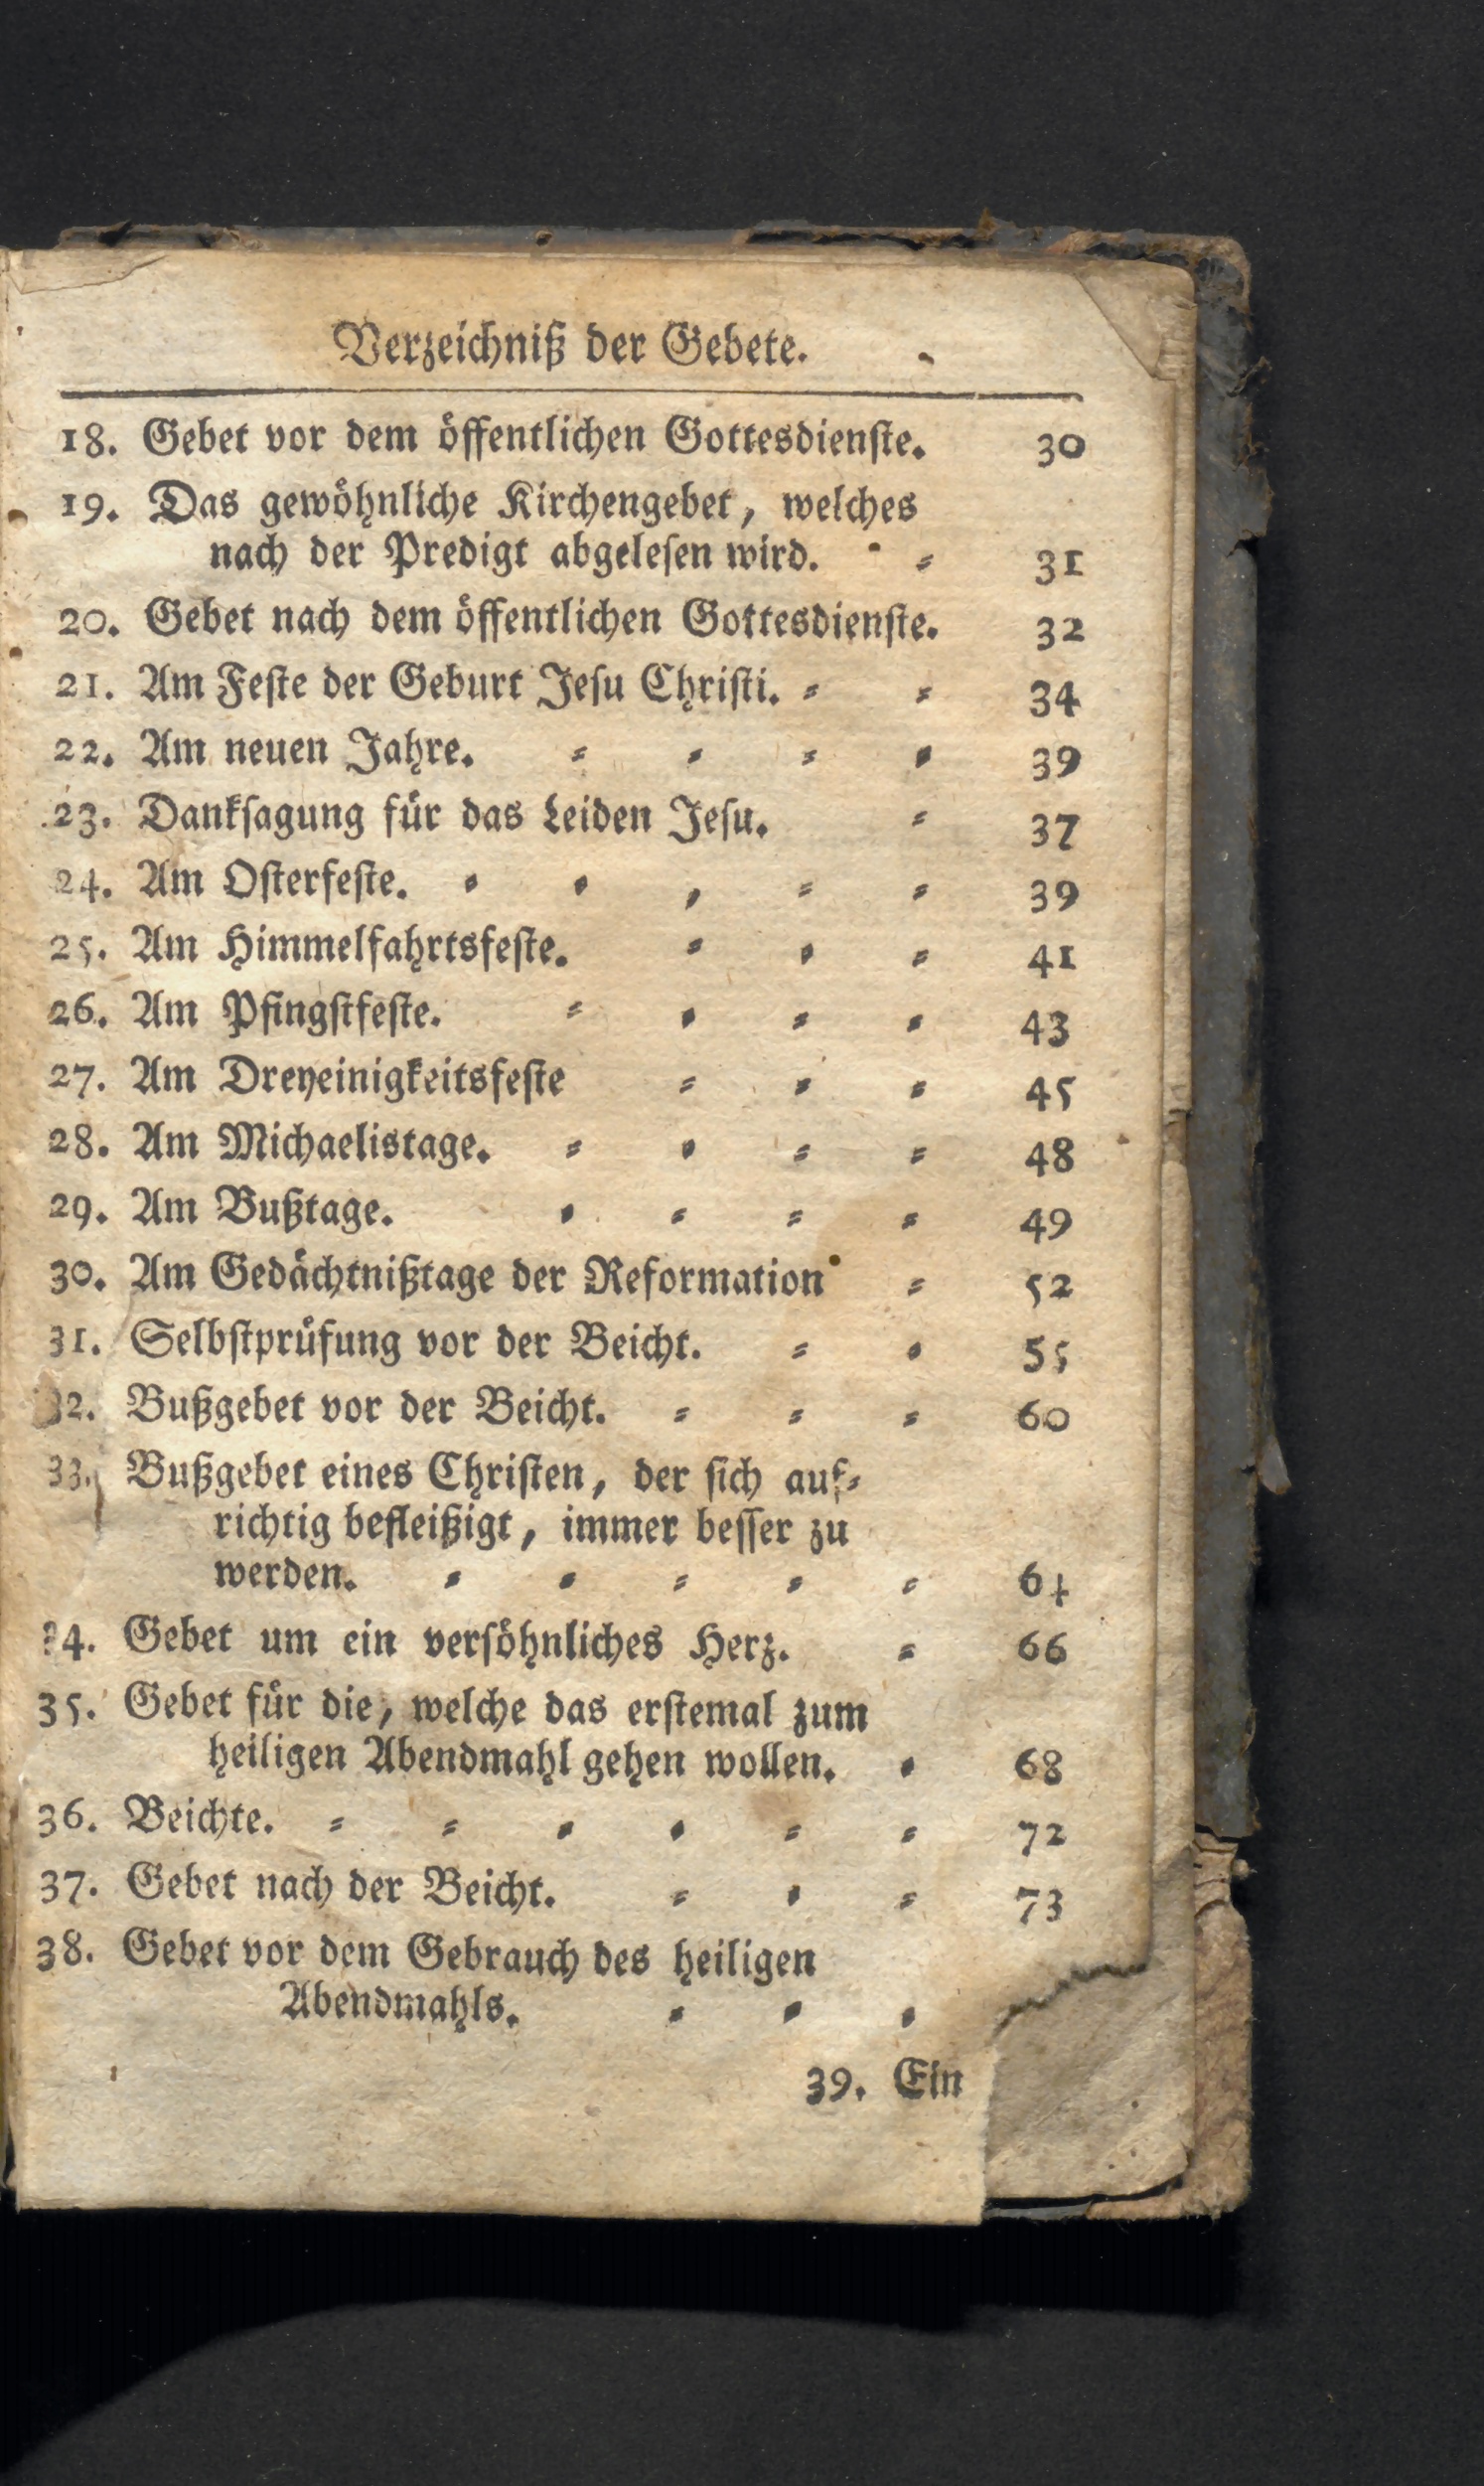 Verzeichniß der Gebete.
18. Gebet vor dem öffentlichen Gottesdienſte. 30
19. Das gewöhnliche Kirchengebet, welches
nach der Predigt abgeleſen wird. ⸗ 31
20. Gebet nach dem öffentlichen Gottesdienſte. 32
21. Am Feſte der Geburt Jeſu Chriſti. ⸗ ⸗ 34
22. Am neuen Jahre. ⸗ ⸗ ⸗ ⸗ 39
23. Dankſagung für das Leiden Jeſu. ⸗ 37
24. Am Oſterfeſte. ⸗ ⸗ ⸗ ⸗ ⸗ 39
25. Am Himmelfahrtsfeſte. ⸗ ⸗ ⸗ 41
26. Am Pfingſtfeſte. ⸗ ⸗ ⸗ ⸗ 43
27. Am Dreyeinigkeitsfeſte ⸗ ⸗ ⸗ 45
28. Am Michaelistage. ⸗ ⸗ ⸗ ⸗ 48
29. Am Bußtage. ⸗ ⸗ ⸗ ⸗ 49
30. Am Gedächtnißtage der Reformation ⸗ 52
31. Selbſtprüfung vor der Beicht. ⸗ ⸗ 55
32. Bußgebet vor der Beicht. ⸗ ⸗ ⸗ 60
33. Bußgebet eines Chriſten, der ſich auf⸗
richtig befleißigt, immer beſſer zu
werden. ⸗ ⸗ ⸗ ⸗ ⸗ 64
34. Gebet um ein verſöhnliches Herz. ⸗ 66
35. Gebet für die, welche das erſtemal zum
heiligen Abendmahl gehen wollen. ⸗ 68
36. Beichte. ⸗ ⸗ ⸗ ⸗ ⸗ ⸗ 72
37. Gebet nach der Beicht. ⸗ ⸗ ⸗ 73
38. Gebet vor dem Gebrauch des heiligen
Abendmahls. ⸗ ⸗ ⸗
39. Ein